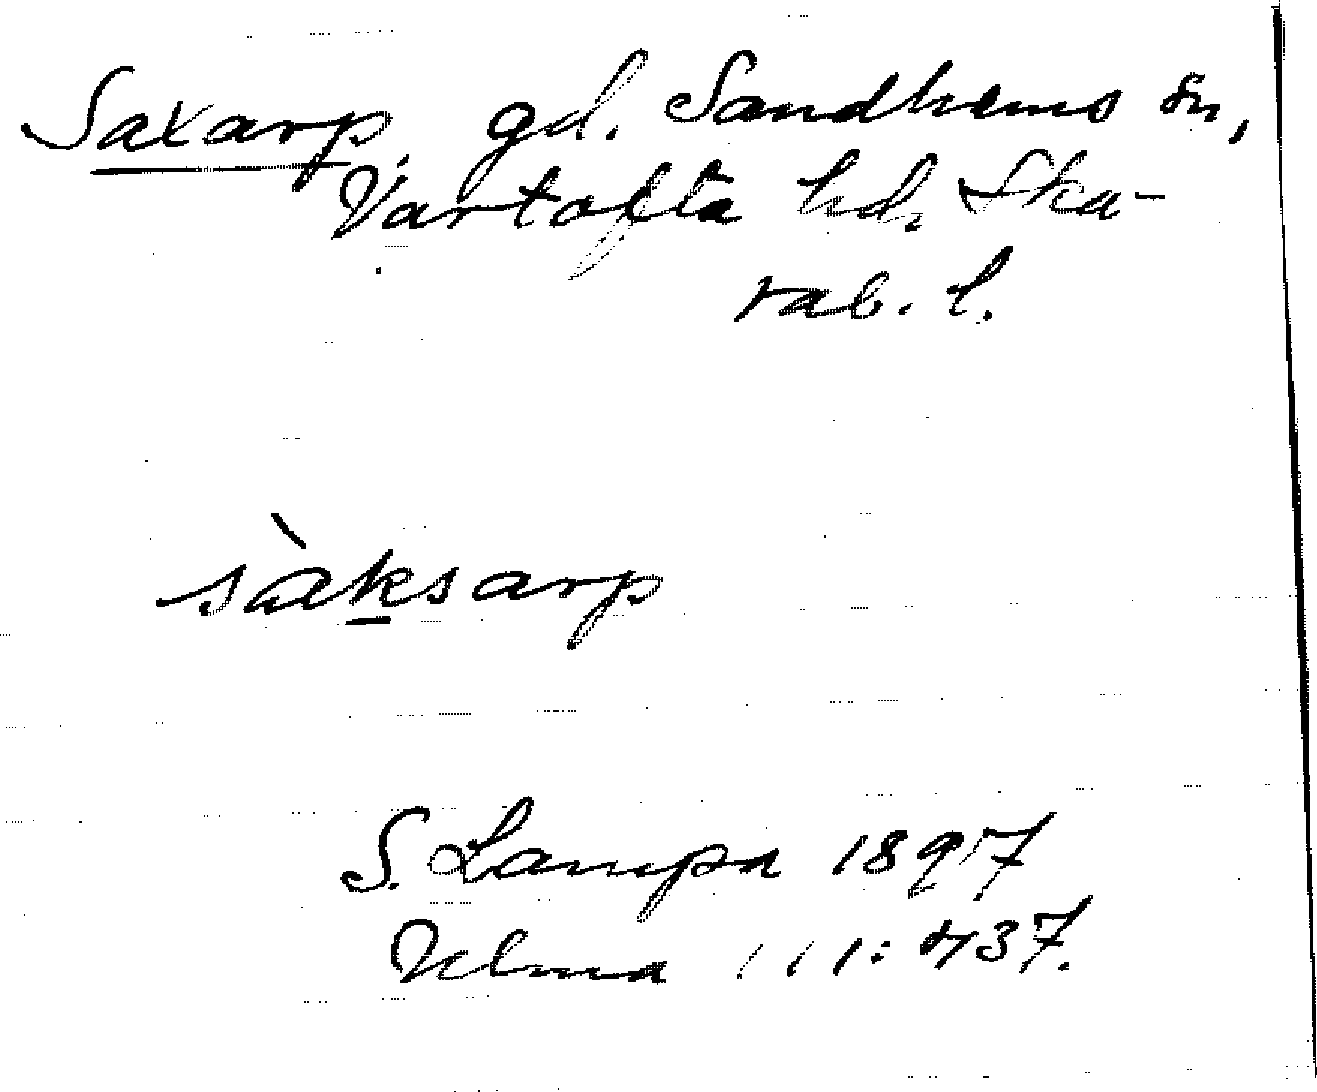 Saxarp, gd. Sandhems sn,
Vartofta hd. Ska-
rab. l.
sàksarp
S. Lampa 1897
Ulma 111:437.